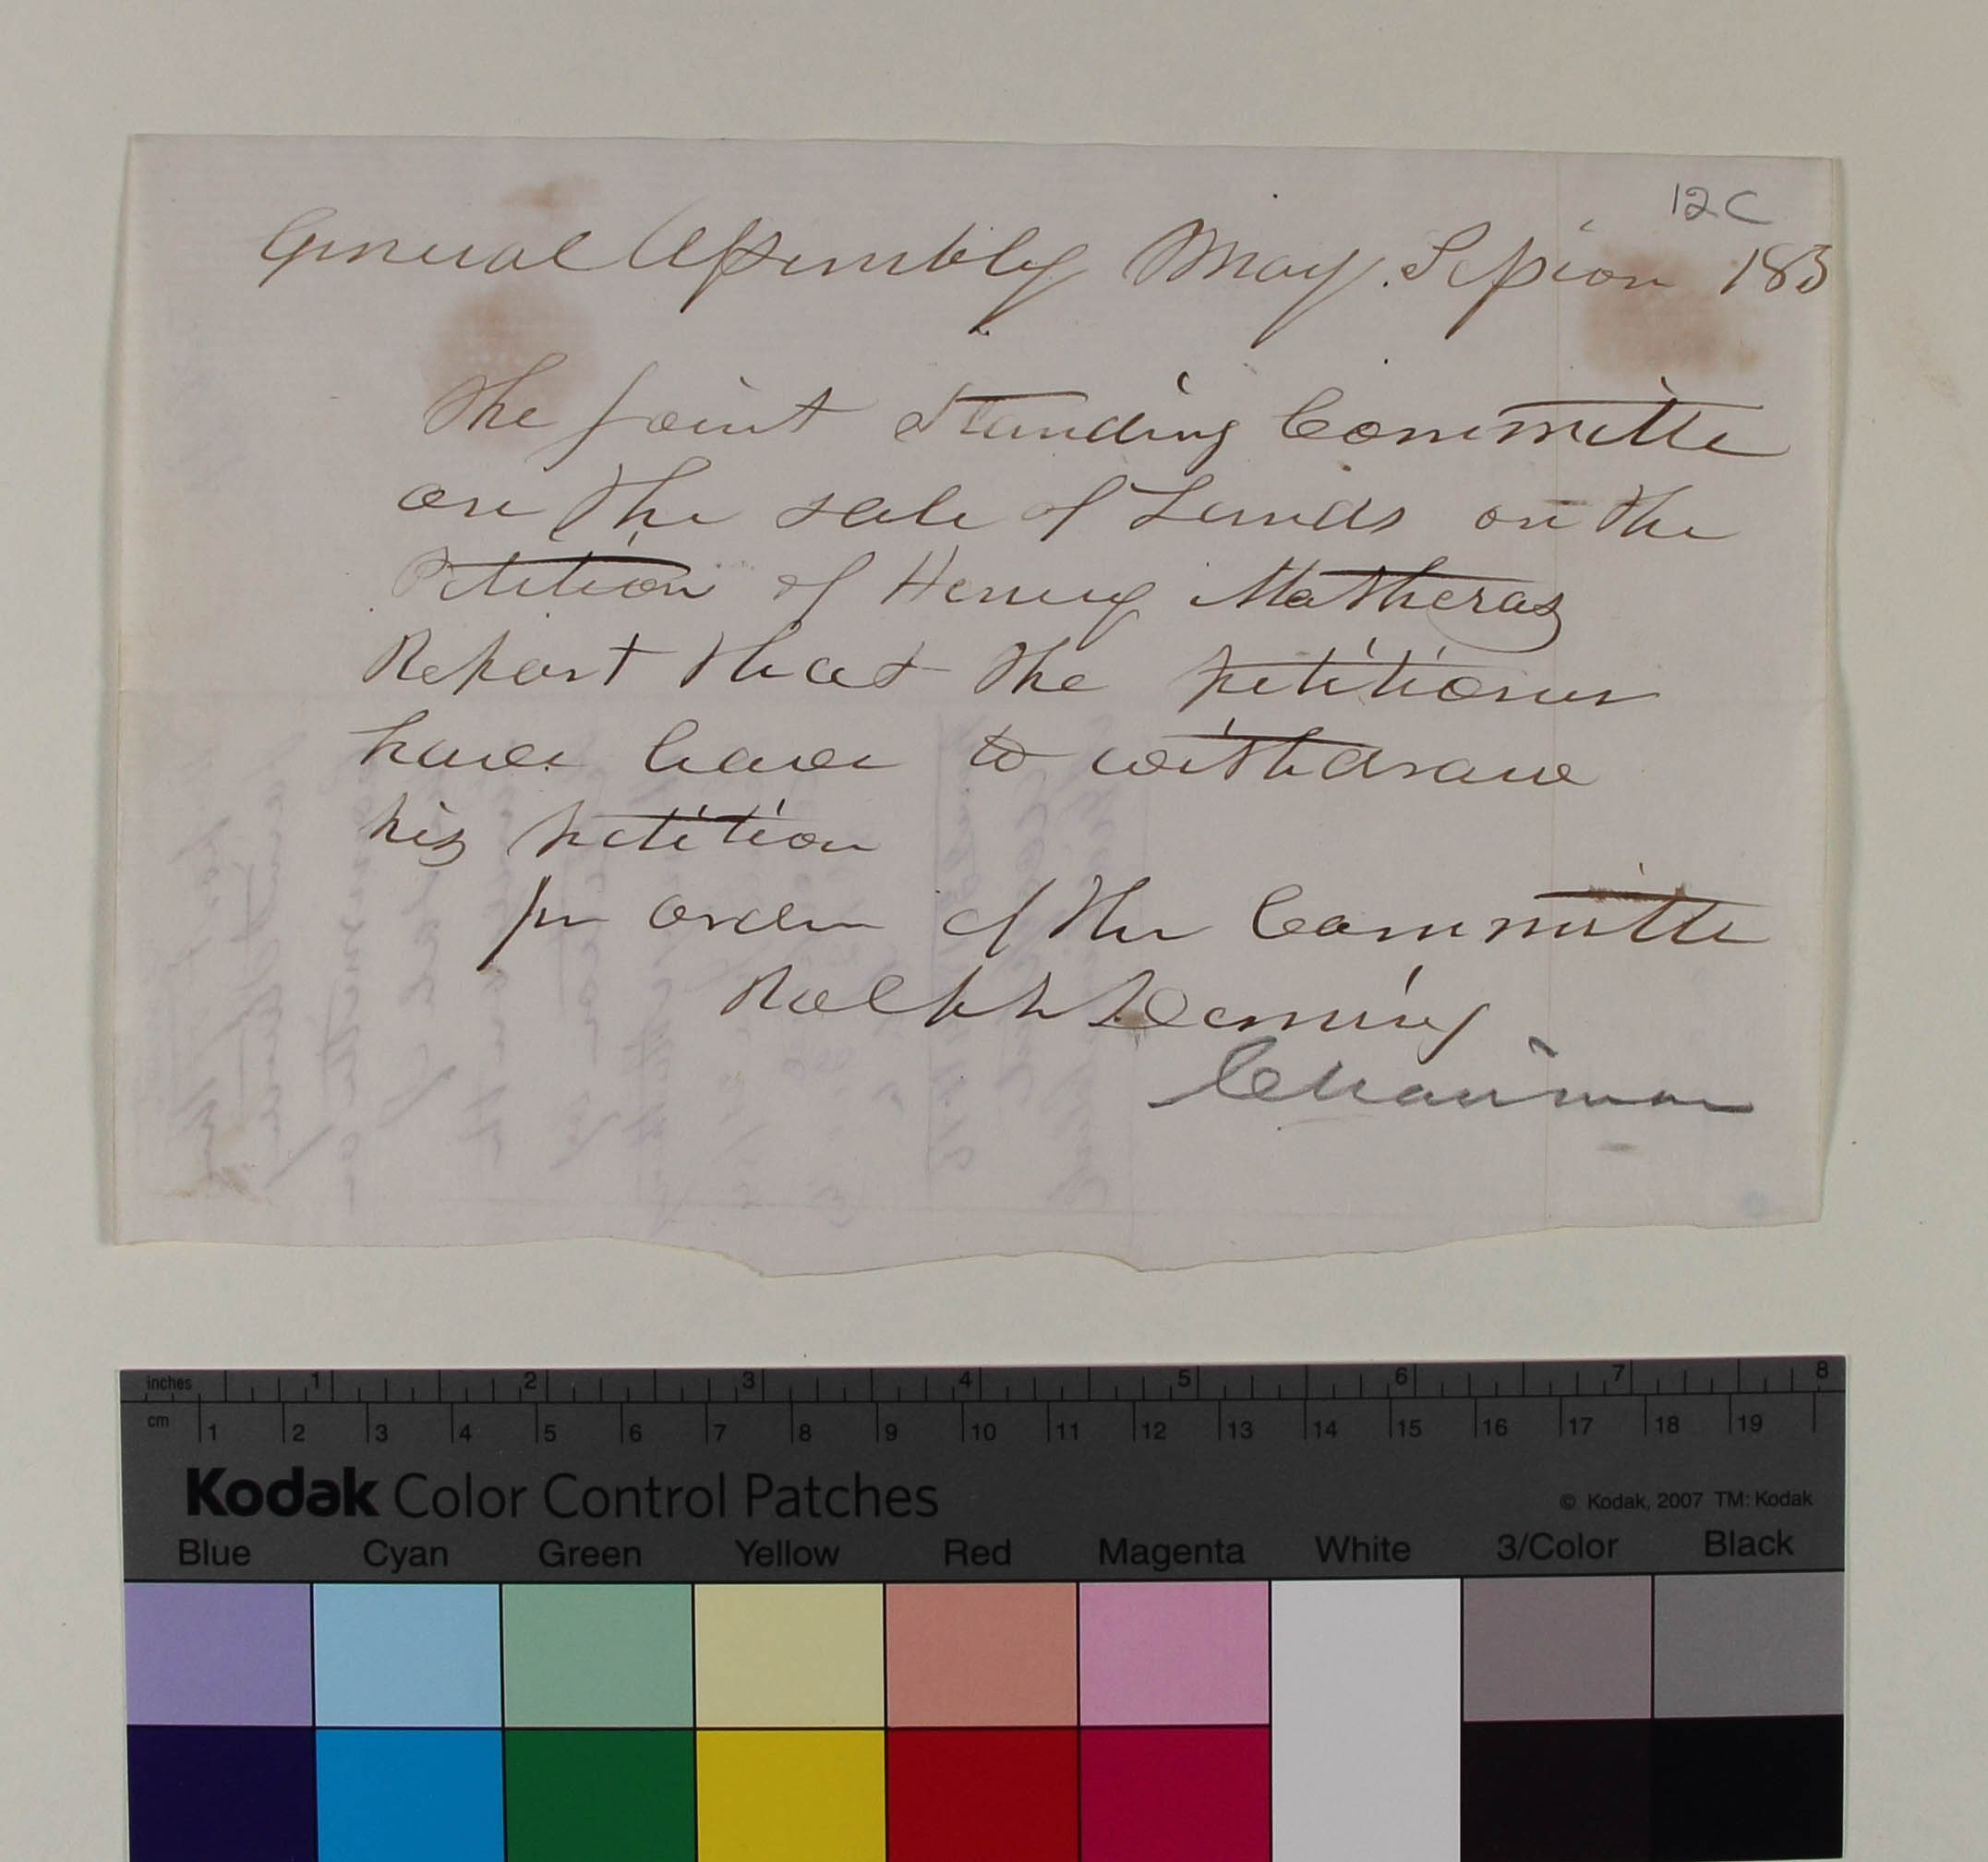 12C
General Assembly May Session 183
The Joint Standing Committe
on the sale of Lands on the
Petition of Henry Matheras
Report that the petitioner
have leave to withdraw
his petition
per order of the Committe
Ralph Deming
Chairman
inches 1 2 3 4 5 6 7 8
cm 1 2 3 4 5 6 7 8 9 10 11 12 13 14 15 16 17 18 19
Kodak Color Control Patches
© Kodak, 2007 TM: Kodak
Blue Cyan Green Yellow Red Magenta White 3/Color Black